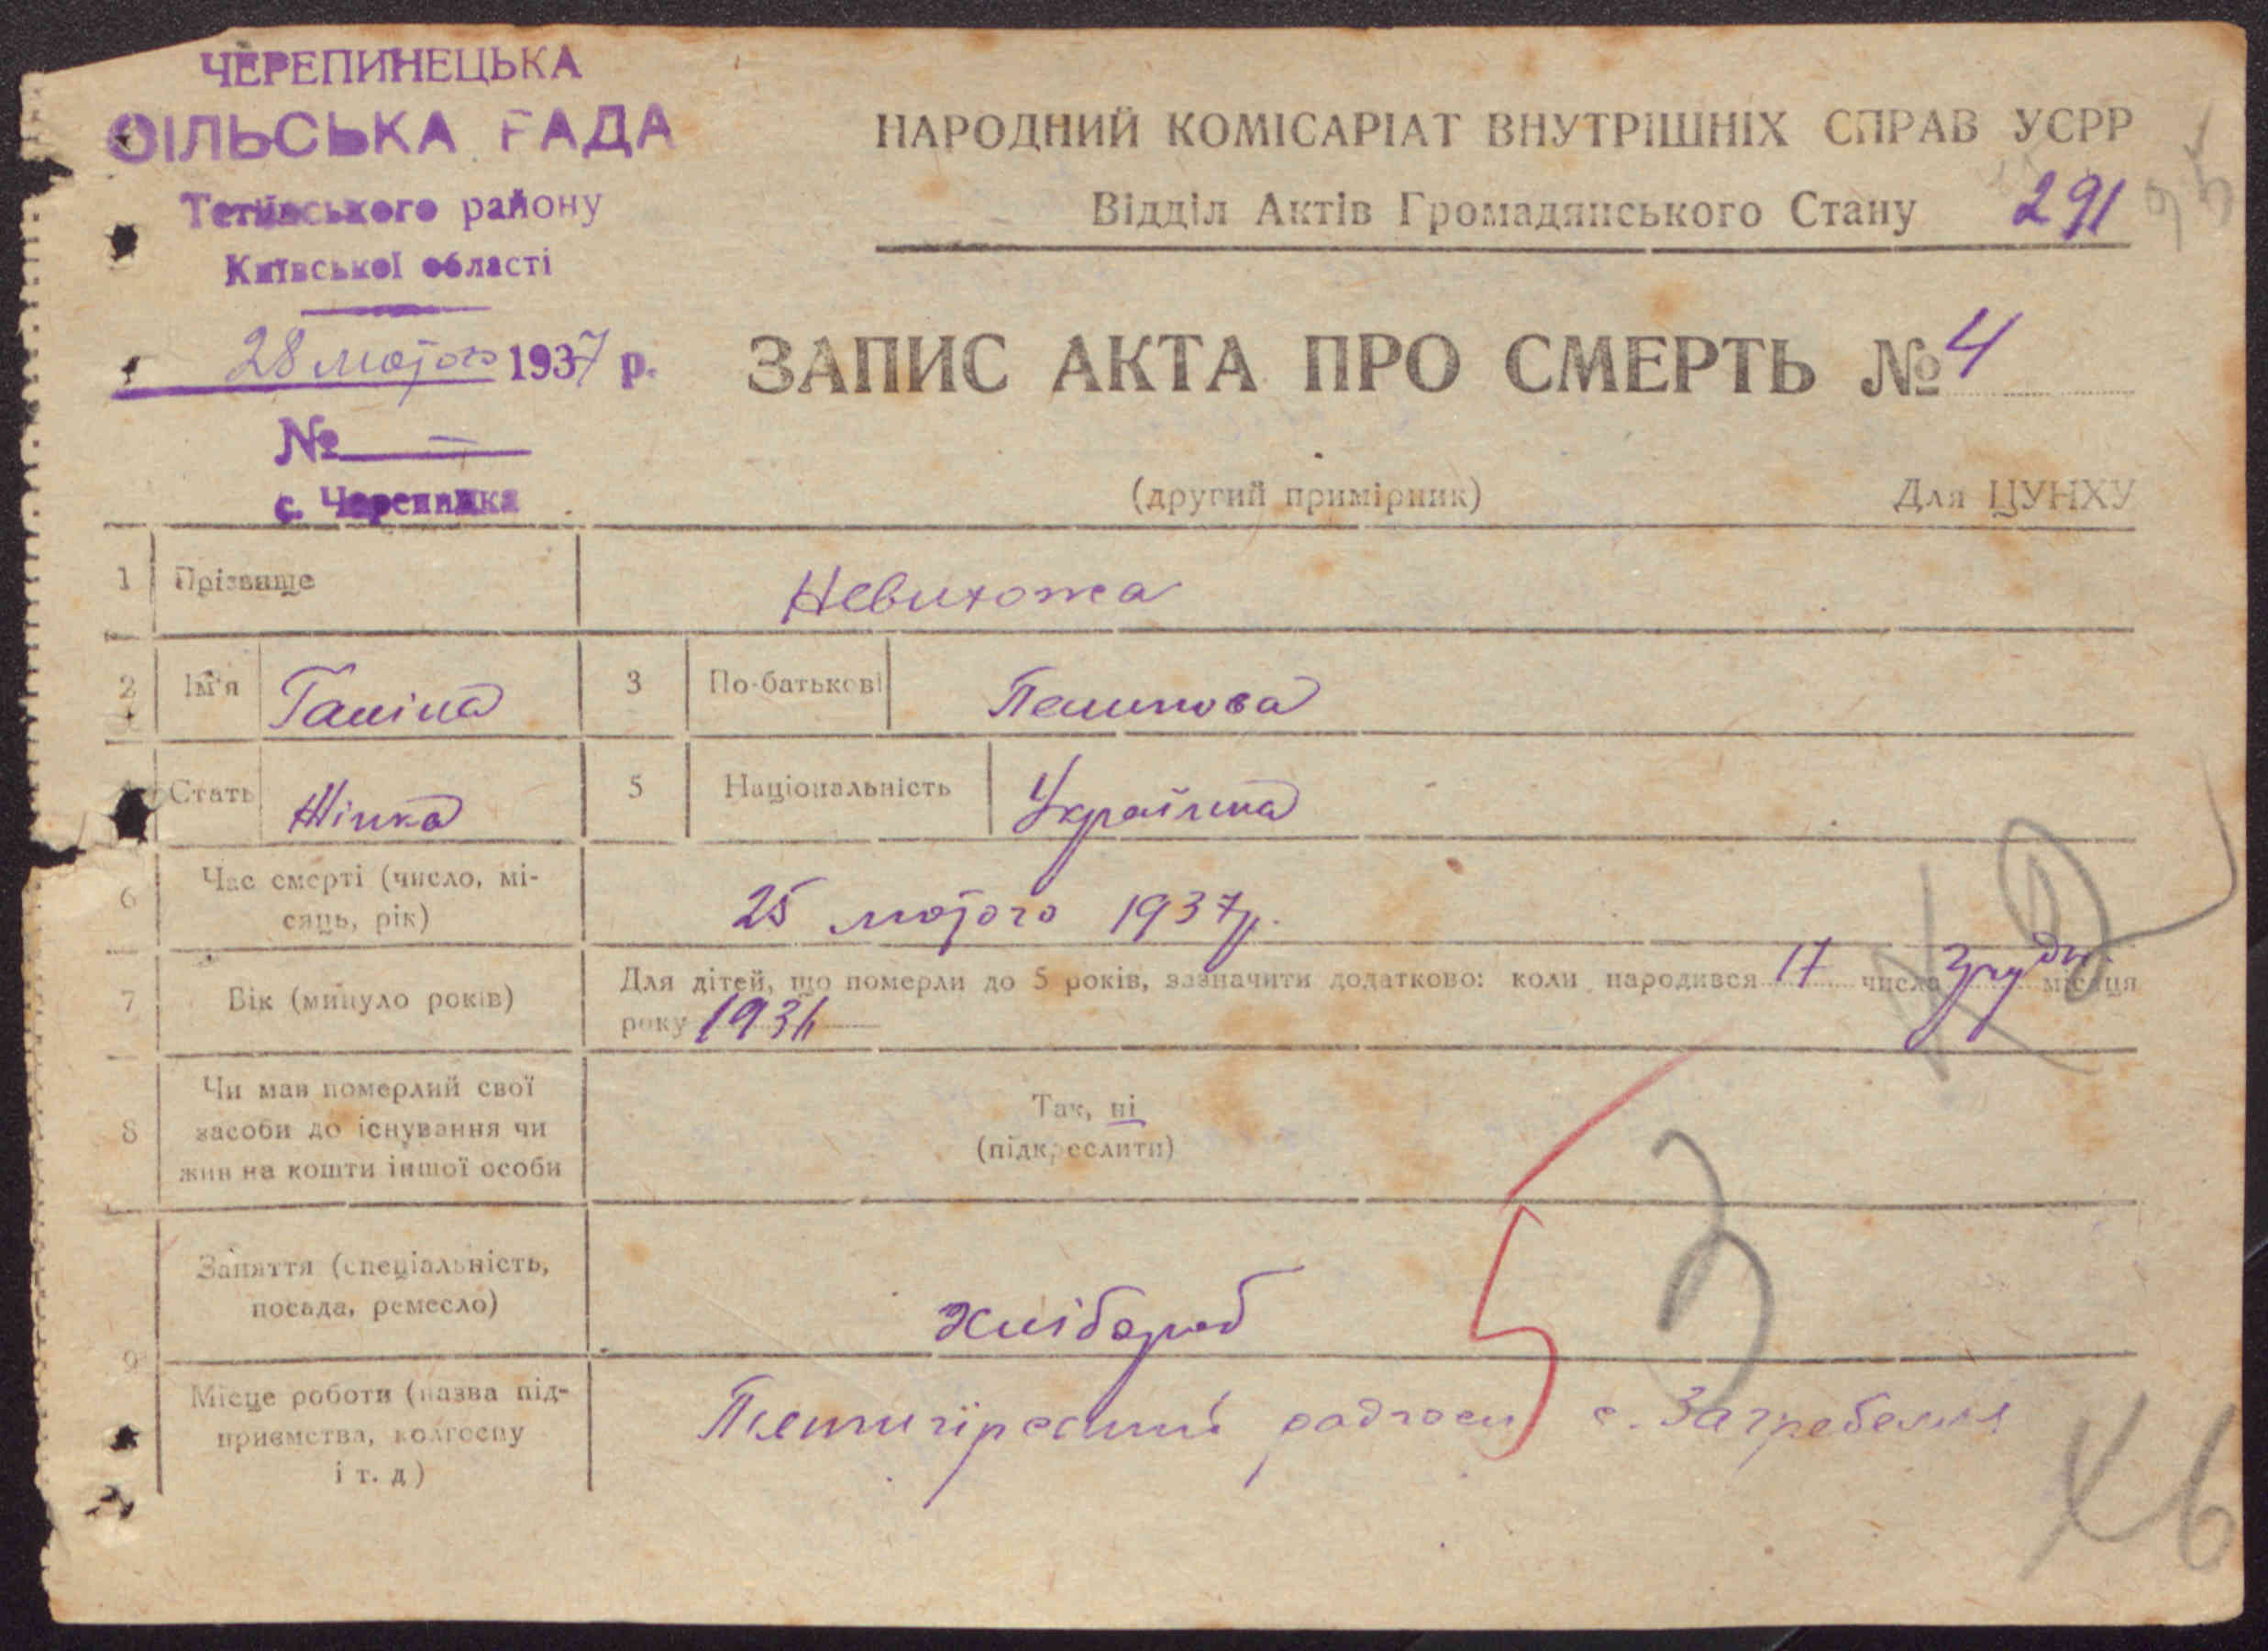 ЧЕРЕПИНЕЦЬКА
СІЛЬСЬКА РАДА
Тетіївського району
Київської області
28 лютого 1937 р.
№ —
с. Черепинка
НАРОДНИЙ КОМІСАРІАТ ВНУТРІШНІХ СПРАВ УСРР
Відділ Актів Громадянського Стану 291
ЗАПИС АКТА ПРО СМЕРТЬ № 4
(другий примірник) Для ЦУНХУ
1 Прізвище Невихожа
2 Ім'я Ганіна 3 По-батькові
Стать Жінка 5 Національність Українка
6 Час смерті (число, мі-
сяць, рік) 25 лютого 1937 р.
7 Вік (минуло років) Для дітей, що померли до 5 років, зазначити додатково: коли народився 17 числа грудн. місяця
року 1936
8 Чи мав померлий свої
засоби до існування чи
жив на кошти іншої особи
Так, ні
(підкреслити)
9 Заняття (спеціальність,
посада, ремесло) Хлібороб
Місце роботи (назва під-
приємства, колгоспу
і т. д) радгосп с. Загребелля